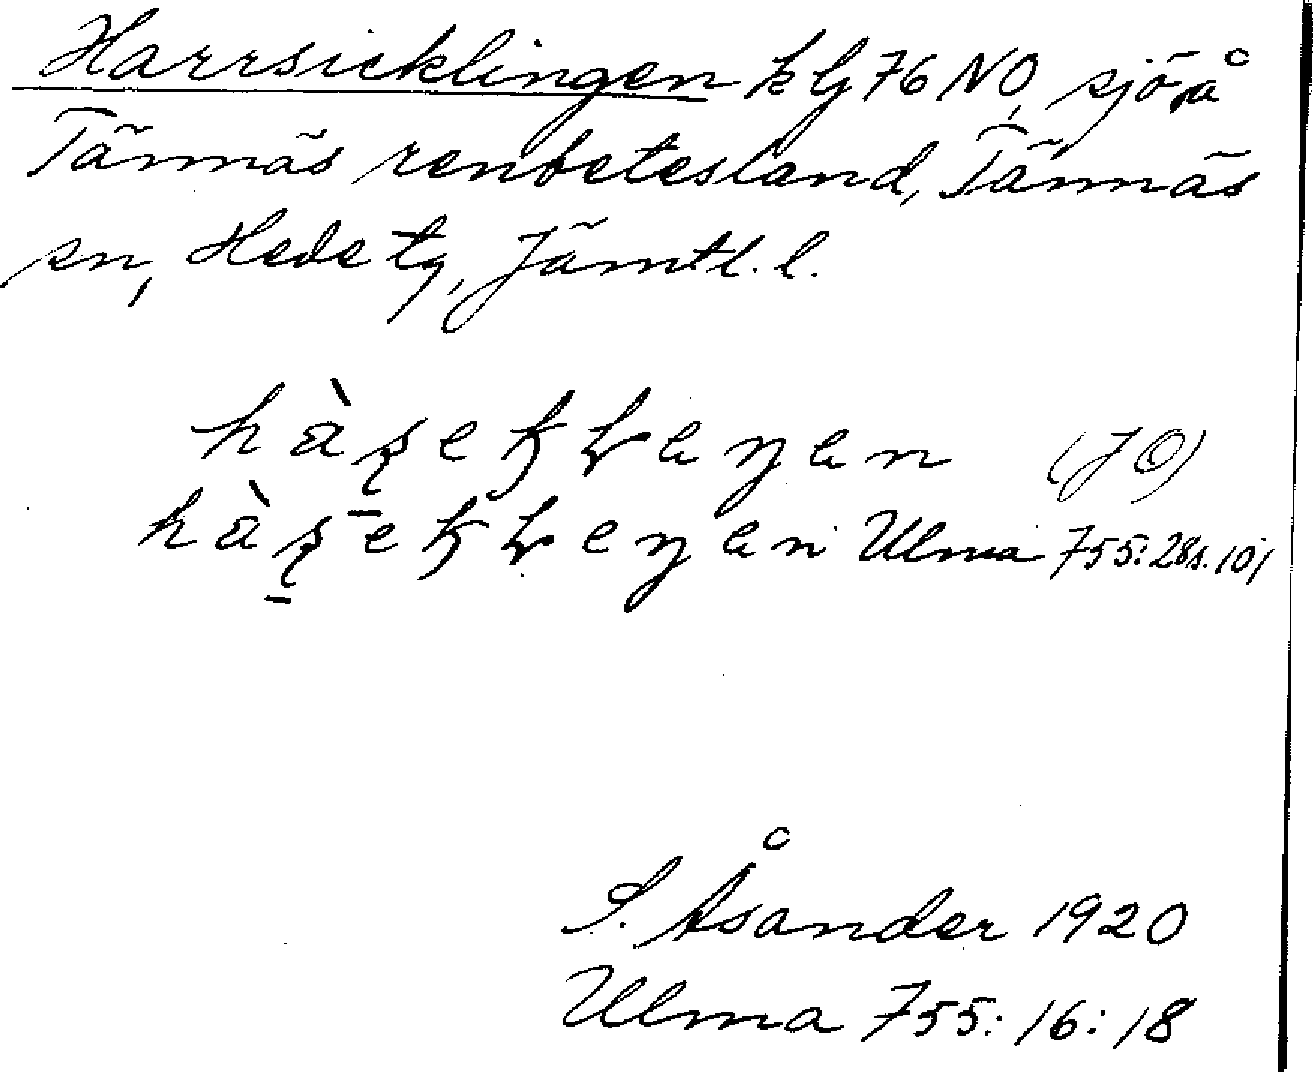 Harrsicklingen kbl 76 NO, sjö, å
Tännäs renbetesland, Tännäs
sn, Hede tg, Jämtl. l.
(JO)
Ulma 755:28 s. 10
S. Åsander 1920
Ulma 755:16:18